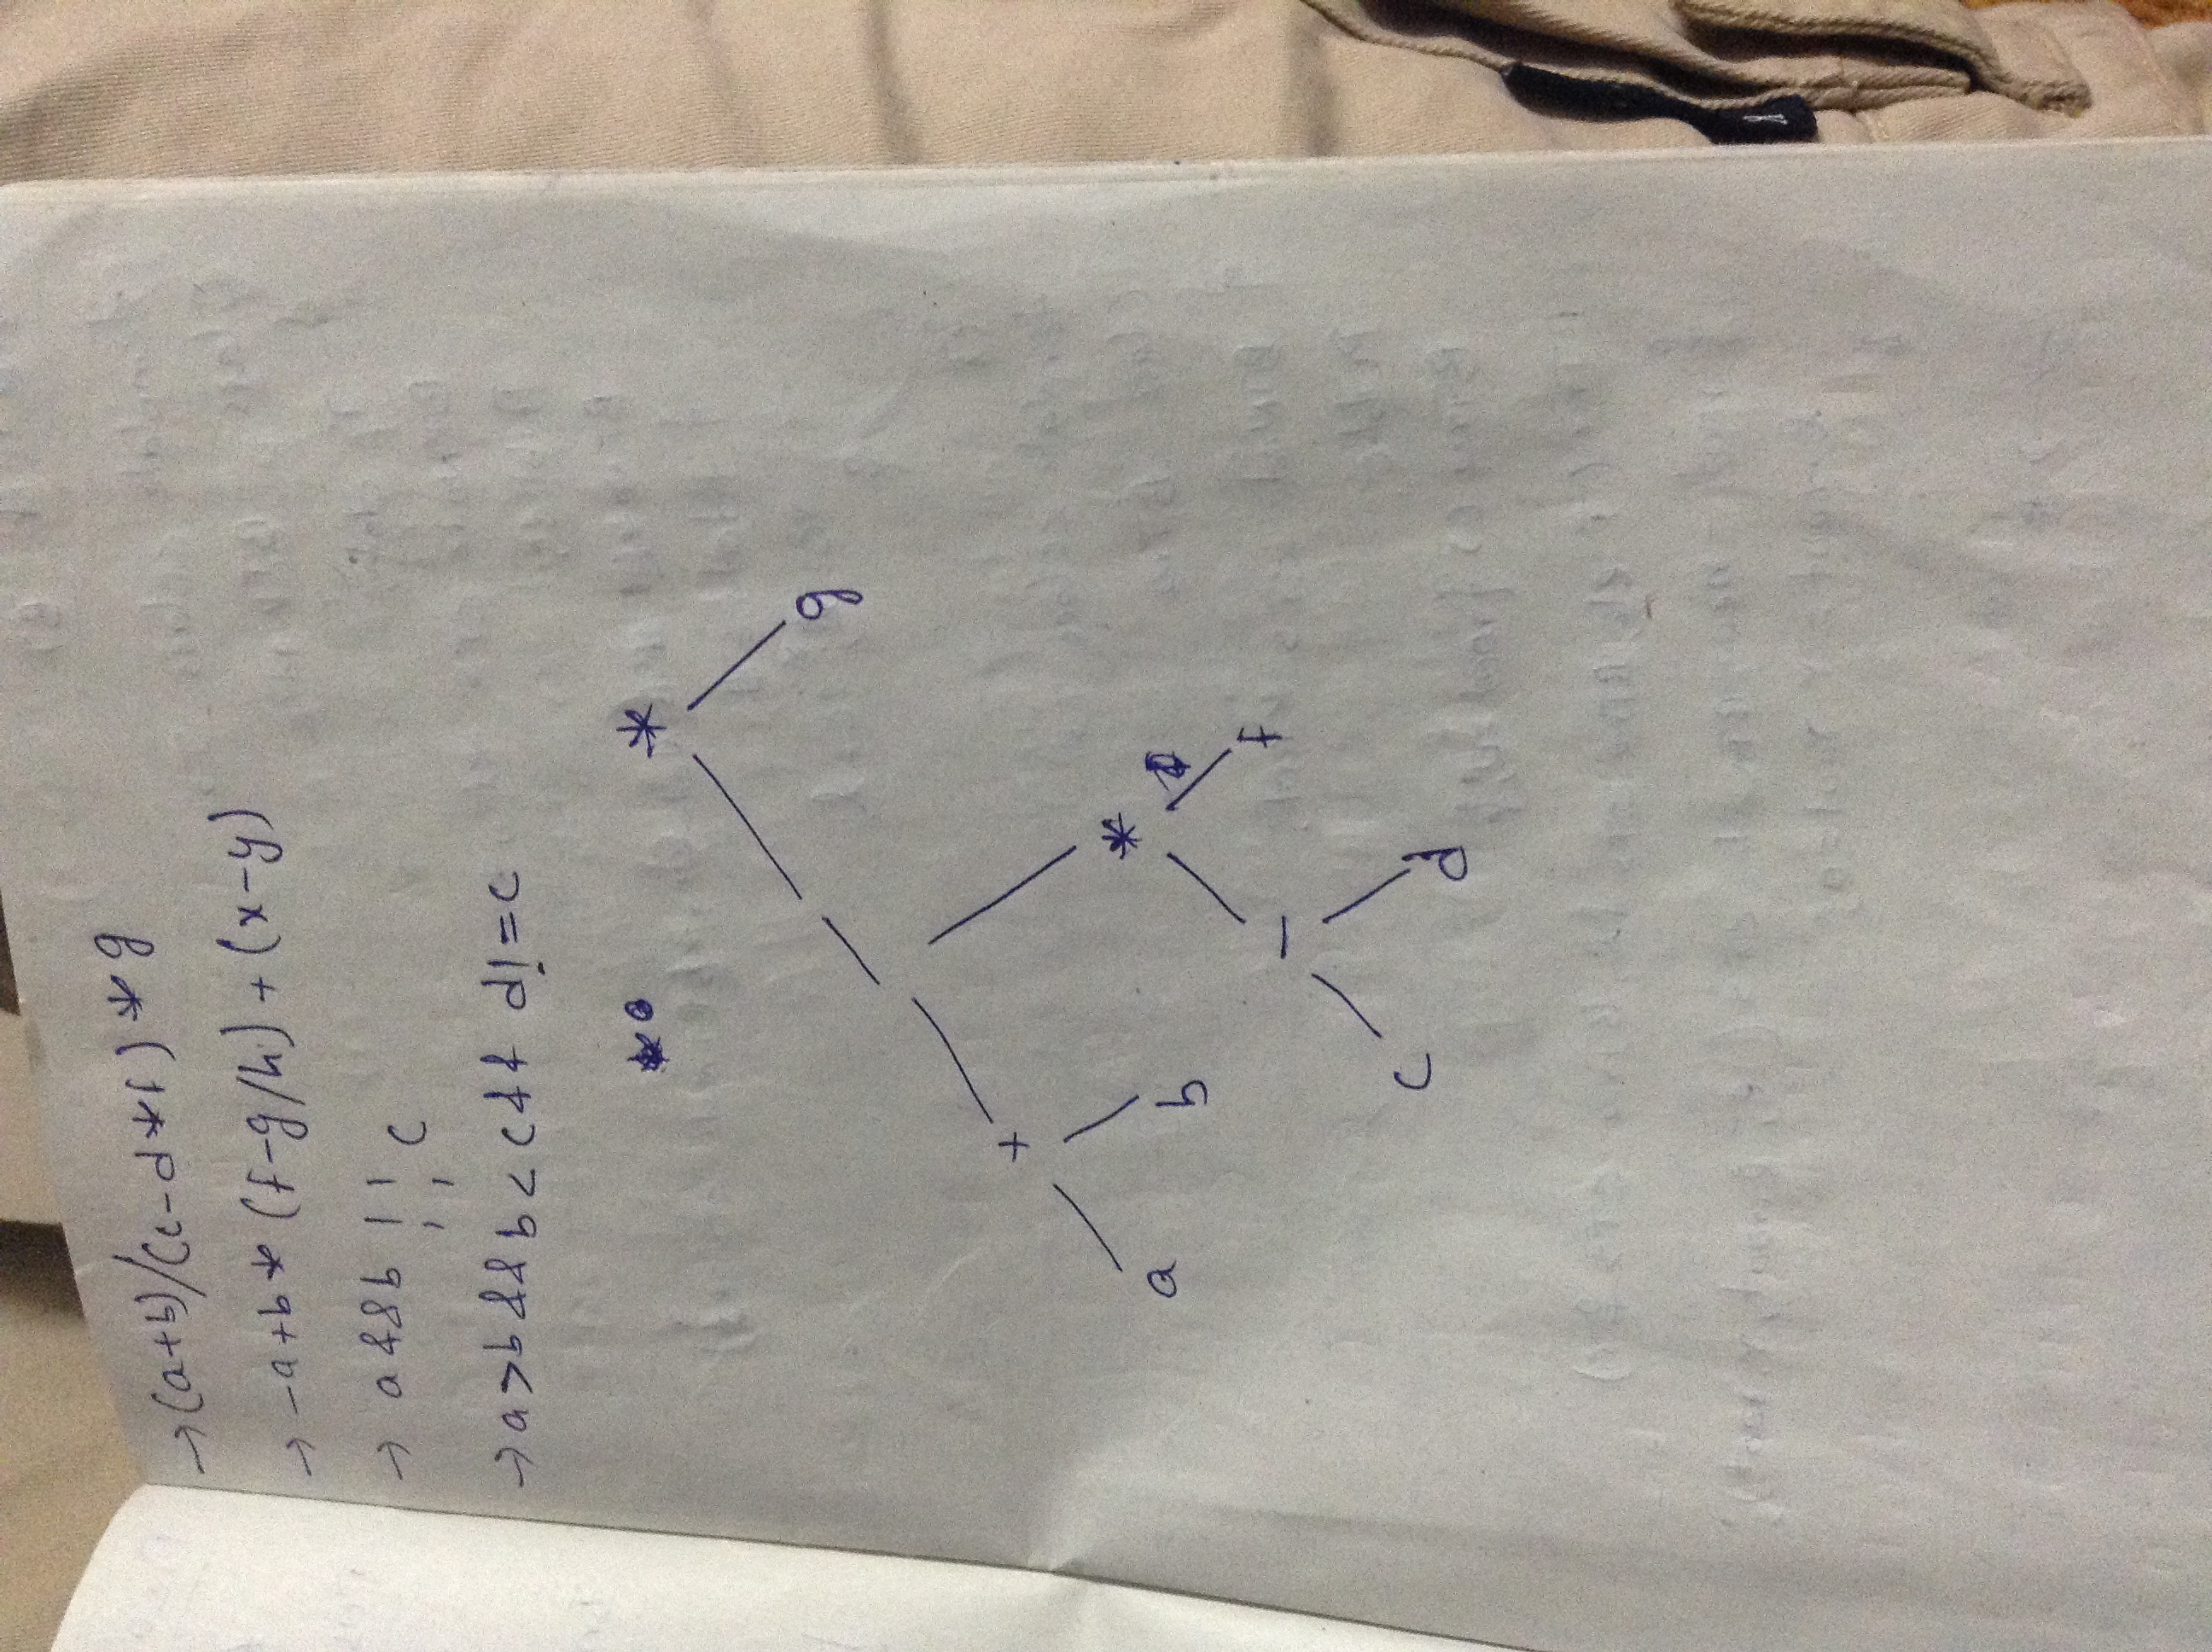 →(a+b)/(c-d*f)*g
→ -a+b*(f-g/h)+(x-y)
→ a&&b || c
→a>b&&b<c&& d!=c
*
/ g
+
a b *
- f
c d